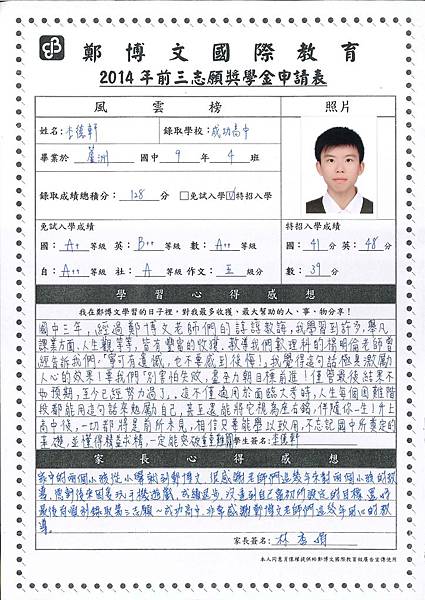 鄭博文國際教育
2014年前三志願獎學金申請表
風雲榜 照片
姓名: 錄取學校:成功高中
畢業於 蘆洲 國中 9 年 4 班
錄取成績總積分: 128 分 □免試入學☑特招入學
免試入學成績 特招入學成績
國: A+ 等級 英: B++ 等級 數: A++ 等級 國: 41 分 英: 48 分
自: A++ 等級 社: A 等級 作文: 五 級分 數: 39 分
學習心得感想
我在鄭博文學習的日子裡,對我最多收獲、最大幫助的人、事、物分享!
國中三年,經過鄭博文老師們的諄諄教誨,我學習到許多,舉凡
課業方面、人生觀等等,皆有豐富的收穫。教導我們數理科的楊明倫老師曾
經告訴我們,「寧可有遺憾,也不要感到後悔!」我覺得這句話極具激勵
人心的效果!要我們「別害怕失敗,盡全力朝目標前進!僅管最後結果不
如預期,至少已經努力過了。」這不僅適用於面臨大考時,人生每個困難階
段都能用這句話來勉勵自己,甚至還能將它視為座右銘,伴隨你一生!升上
高中後,一切都將是前所未見,相信只要能學以致用,不忘記國中所奠定的
基礎,並懂得精益求精,一定能突破重重難關!學生簽名:
家長心得感想
家中的兩個小孩從小學就到鄭博文,很感謝老師們這幾年來對兩個小孩的教
導,
最後有順利錄取第三志願~成功高中,非常感謝鄭博文老師們這幾年用心的教
導。
家長簽名:
本人同意肖像權提供給鄭博文國際教育做廣告宣傳使用